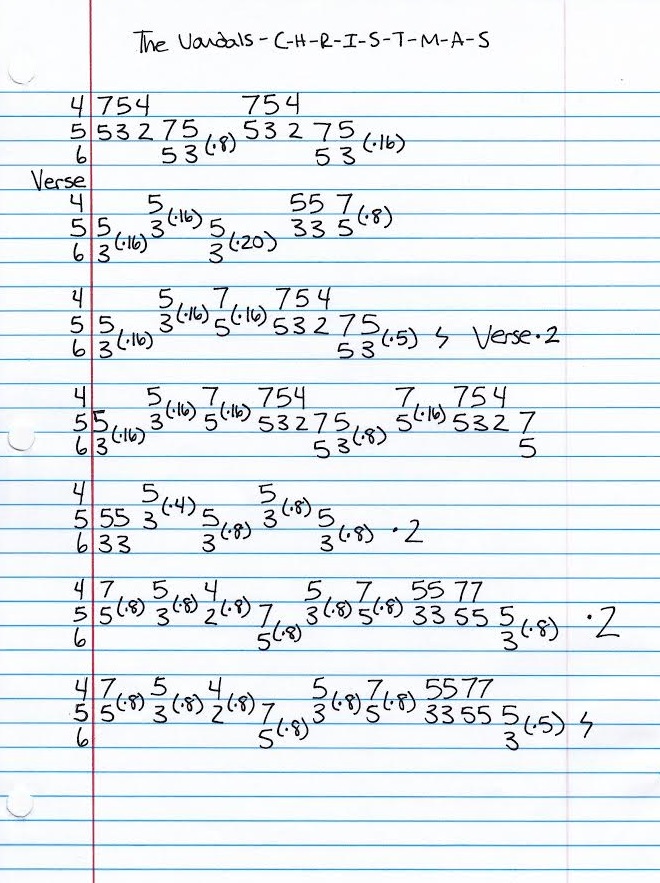 The Vandals - C-H-R-I-S-T-M-A-S
4 754 754
5 532 75 532 75
6 53(·8) 53(·16)
Verse
4 5 55 7
5 5 3(·16) 5 33 5(·8)
6 3(·16) 3(·20)
4 5 7 754
5 5 3(·16) 5(·16) 532 75
6 3(·16) 53(·5) ϟ Verse·2
4 5 7 754 7 754
5 5 3(·16) 5(·16) 532 75 5(·16) 532 7
6 3(·16) 53(·8) 5
4 5 5
5 55 3(·4) 5 3(·8) 5
6 33 3(·8) 3(·8) ·2
4 7 5 4 5 7 55 77
5 5(·8) 3(·8) 2(·8) 7 3(·8) 5(·8) 33 55 5
6 5(·8) 3(·8) ·2
4 7 5 4 5 7 55 77
5 5(·8) 3(·8) 2(·8) 7 3(·8) 5(·8) 33 55 5
6 5(·8) 3(·5) ϟ